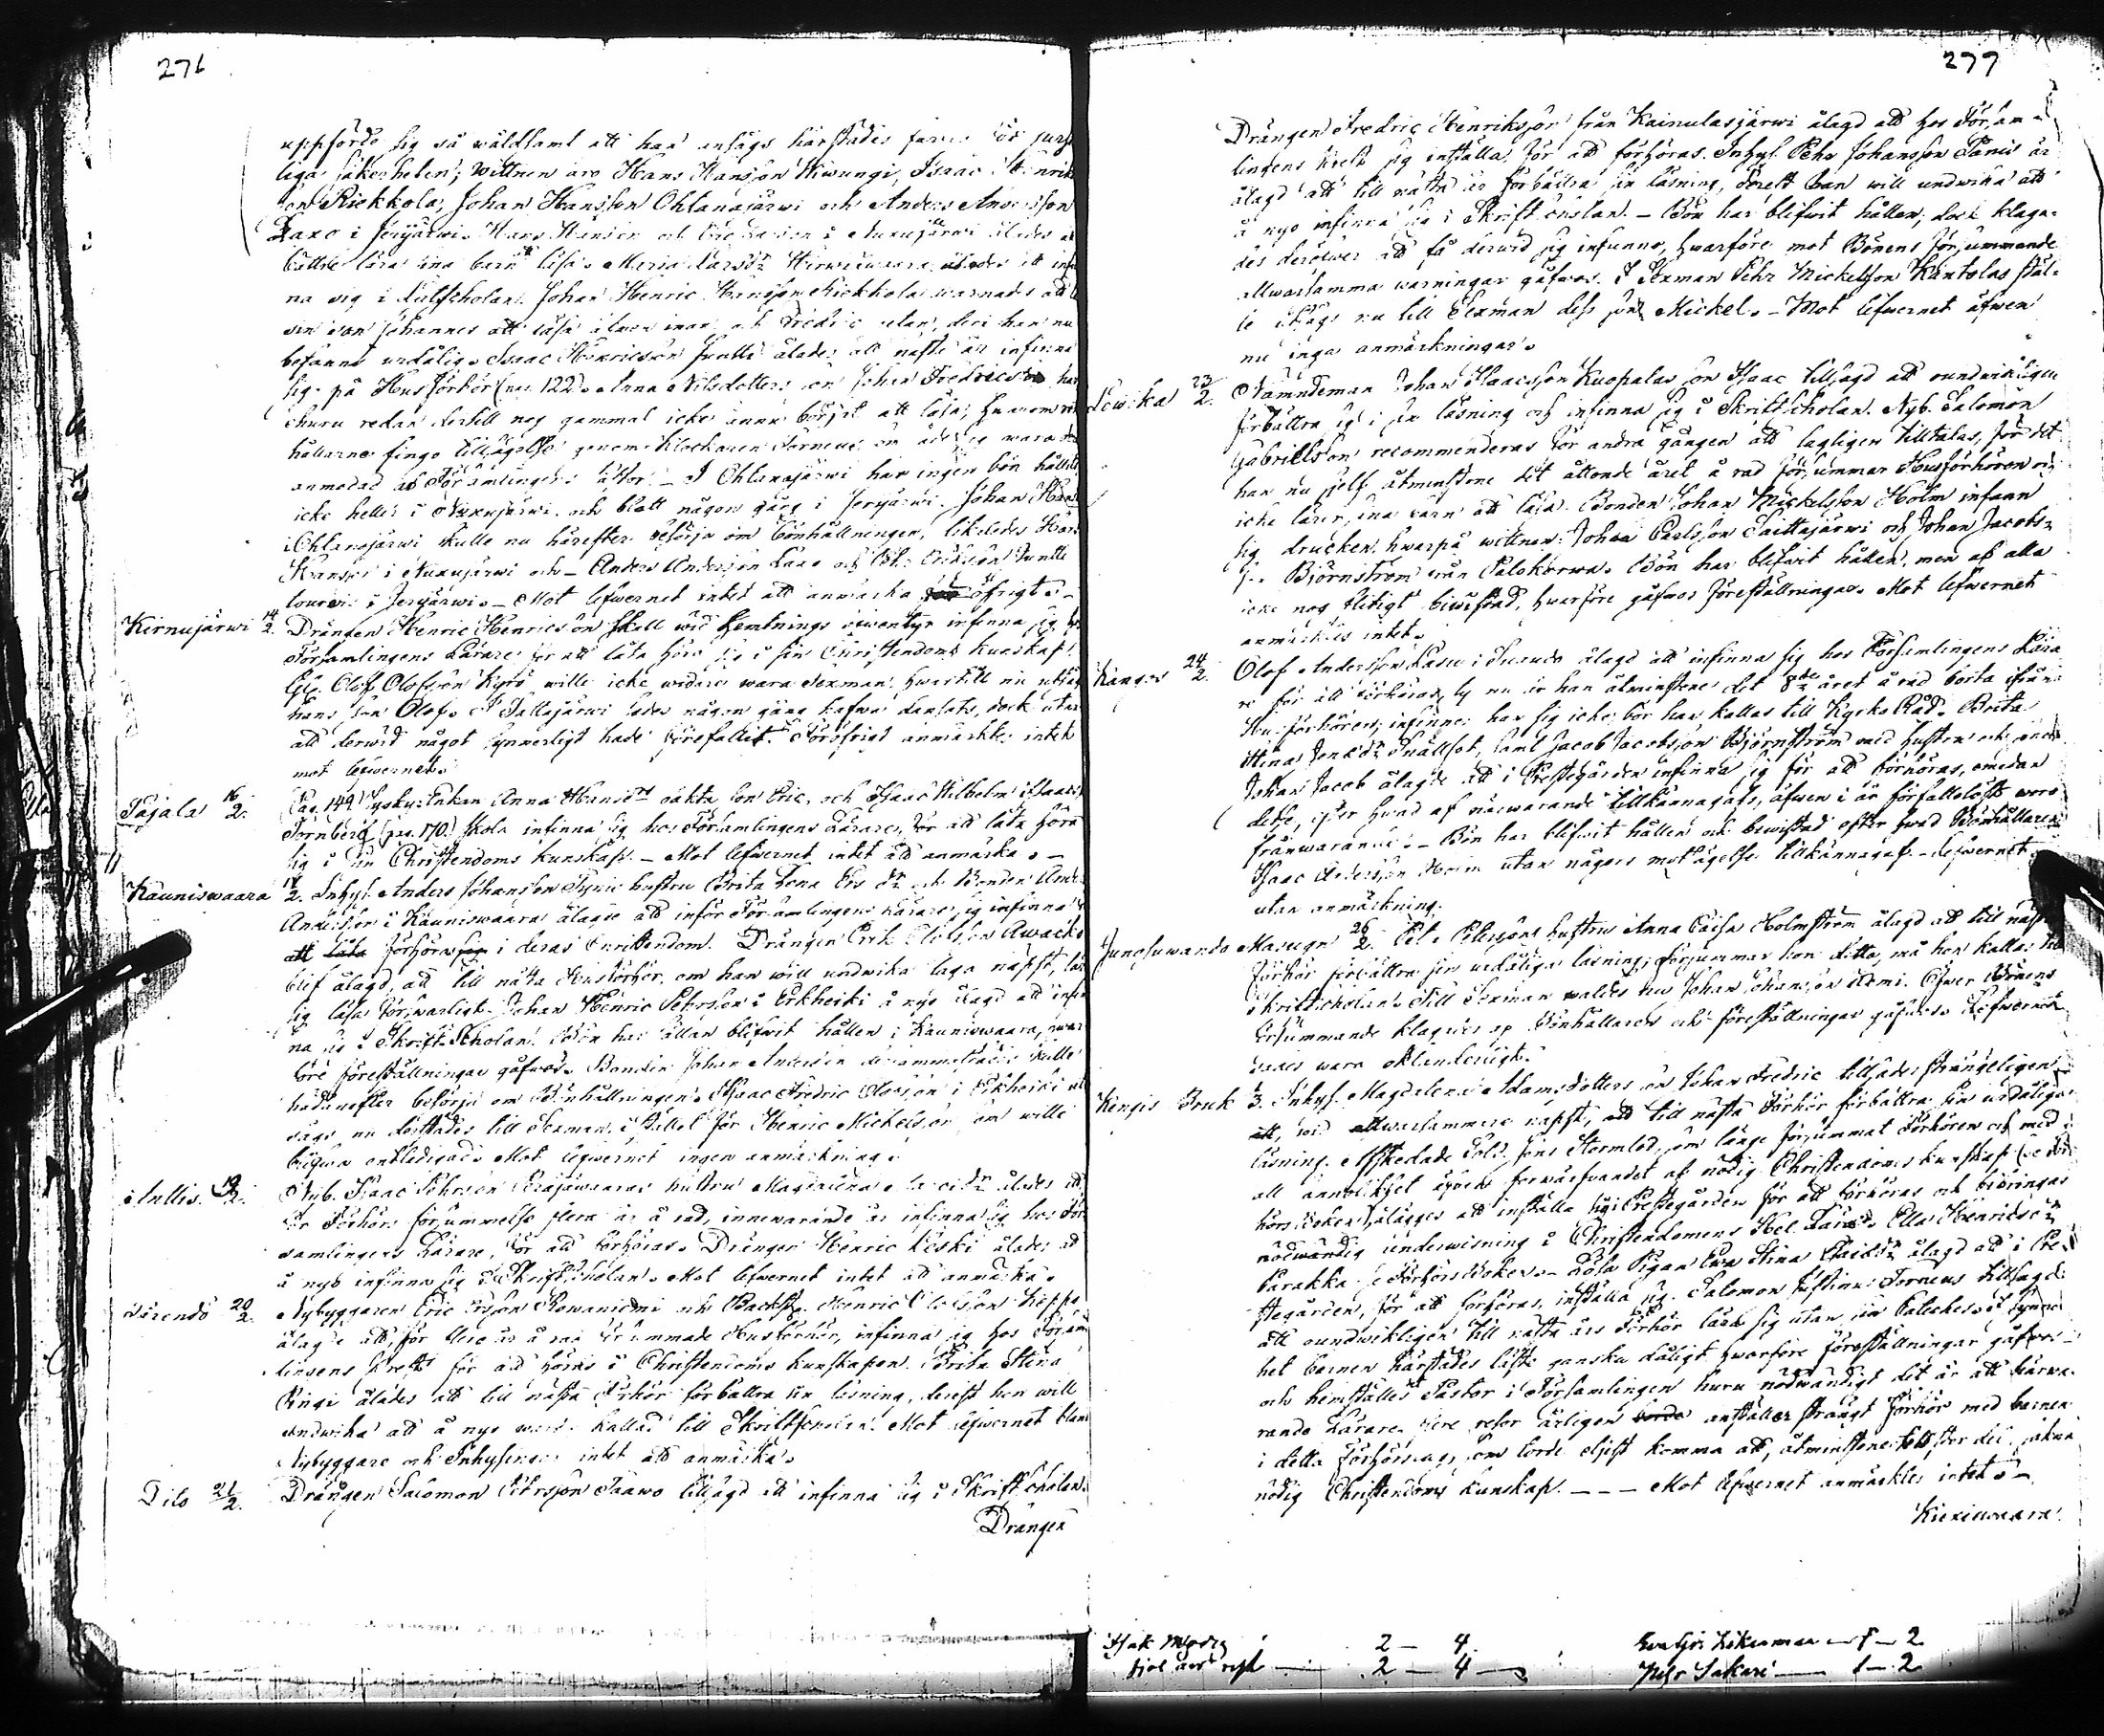 276
uppförde sig så wåldsamt att han ansågs härstädes
liga säkerheten; Wittnen äro Hans Hansson Kiwungi, Isaac Henrik
son Rickkola, Johan Hansson Ohtanajärwi och Anders Andersson
Laxo i Jerijärwi. Hans Hansson och Eric Larsson i Nuxujärwi ålades
bättre lära sina barn läsa. Maria Larsdr Hirwiwaara ålades att infin
na sig i Scholan. Johan Henric Hansson Rickkola warnades att
sin son Johannes att läsa äfwen innan och utan, deri han nu
befanns urdålig. Isaac Henricsson Juntti ålades att nästa år infinna
sig på Husförhör (pag. 122). Anna Nilsdotters son Johan Fredricsson har
ehuru redan dertill nog gammal icke ännu börjat att läsa; hwarom
hållarne fingo tillsägelse genom Klockaren Torneus
anmodad af Församlingens Pastor. - I Ohtanajärwi har ingen bön hållits
icke heller i Nuxujärwi, och blott någon gång i Jerijärwi. Johan Hans
i Ohtanajärwi skulle nu härefter besörja om bönhållningen, likaledes Hans
Hansson i Nuxujärwi och - Anders Andersson Laxo och Joh. Ericsson Juntti
tourvis i Jerijärwi. - Mot lefwernet intet att anmärka öfrigt. -
Kirnujärwi 14/2. Drängen Henric Henricsson skall wid hemtnings äfwentyr infinna sig hos
Församlingens Lärare för att låta höra sig i sin Christendoms kunskap.
Gl. Olof Olofsson Kyrö wille icke widare wara Sexman, hwartill nu utsågs
hans son Olof. I Sattajärwi sades någon gång hafwa dansats, dock utan
att derwid något synnerligt hade förefallit. Föröfrigt anmärktes intet
mot lefwernet.
Pajala 16/2. (Pag. 149) Enkan Anna Hansdrs oäkta son Eric, och Isaac Wilhelm Isaacss.
Törnberg (pag. 170) skola infinna sig hos Församlingens Lärare, för att låta höra
sig i sin Christendoms kunskap. - Mot lefwernet intet att anmärka. -
Kauniswaara 18/2. Inhys. Anders Johansson Tyni hustru Brita Lena Ersdr och Bonden And.
Andersson i Kauniswaara ålagde att inför Församlingens Lärare sig infinna
att låta förhöras i deras Christendom. Drängen Erik Olofsson Awack
blef ålagd, att till nästa Husförhör, om han will undwika laga näpst, lära
sig läsa förswarligt. Johan Henric Pehrsson i Erkheiki å nyo ålagd att infin
na sig i Skrift Scholan. Bön har sällan blifwit hållen i Kauniswaara, hwar
före föreställningar gåfwos. Bonden Johan Andersson dersammastädes skulle
hädanefter besörja om Bönhållningen. Isaac Fredric Olofsson i Erkheiki ut
sågs nu derstädes till Sexman i stället för Henric Mickelsson som wille
blifwa entledigad. Mot lefwernet ingen anmärkning.
Anttis. 19/2. Nyb. Isaac Pehrsson Peräjäwaaras hustru Magdalena ålades att
för Förhörs försummelse flera år å rad, innewarande år infinna sig hos För
samlingens Lärare, för att förhöras. Drängen Henric Liski ålades att
å nyo infinna sig i Skrift Scholan. Mot lefwernet intet att anmärka.
Tärendö 20/2. Nybyggaren Eric Ersson Rowaniemi och Backst. Henric Olofsson
ålagde att, för flere år å rad försummade Husförhör, infinna sig hos Försam
lingens Prest för att höras i Christendoms kunskapen. Brita Stina
Pingi ålades att till nästa Förhör förbättra sin läsning, derest hon will
undwika att å nyo warda kallad till Skriftscholan. Mot lefwernet bland
Nybyggare och Inhyseser intet att anmärka.
Dito 21/2. Drängen Salomon Pehrsson Saawo tillsagd att infinna sig i Skriftscholan.
Drängen
277
Drängen Fredric Henriksson från Kainulasjärwi ålagd att hos Försam-
lingens Prest sig inställa för att förhöras. Inhys. Pehr Johansson Panis är
ålagd att till nästa år förbättra sin läsning, derest han will undwika att
å nyo infinna sig i Skriftscholan. - Bön har blifwit hållen; dock klaga-
des deröfwer att få derwid sig infunno, hwarföre mot Bönens försummande
allwarsamma warningar gåfwos. I Sexman Pehr Mickelsson Kantolas stäl-
le utsågs nu till Sexman dess son Mickel. - Mot lefwernet äfwen
nu inga anmärkningar.
Lowika 23/2. Nämndeman Johan Isaacsson Kuopalas son Isaac tillsagd att oundwikligen
förbättra sig i sin läsning och infinna sig i Skriftscholan. Nyb. Salomon
Gabrielsson recommenderas för andra gången att lagligen tilltalas, för det
han nu sjelf åtminstone det åttonde året å rad försummar Husförhören och
icke lärer sina barn att läsa. Bonden Johan Mickelsson Holm infann
sig drucken, hwarpå wittna: Johan Carlsson Saittajärwi och Johan Jacobs-
son Björnström från Palokorwa. Bön har blifwit hållen, men af alla
icke nog flitigt biwistad, hwarföre gåfwos föreställningar. Mot lefwernet
anmärktes intet.
Kangos 24/2. Olof Andersson Lasu i ålagd att infinna sig hos Församlingens Lära
re för att förhöras, ty nu är han åtminstone det 8de året å rad borta ifrån
Husförhören; infinner han sig icke, bör han kallas till Kyrko Råd. Brita
Stina Jonsdr Snällfot, samt Jacob Jacobsson Björnström med hustru och son
Johan Jacob ålagde att i Prestegården infinna sig för att förhöras, emedan
dessa, efter hwad af närwarande tillkännagafs, äfwen i år förfallolöst woro
frånwarande. - Bön har blifwit hållen och bewistad efter hwad Bönhållaren
Isaac Andersson Heim utan någons motsägelse tillkännagaf. - Lefwernet
utan anmärkning.
Junosuwando Masugn 26/2. Pet. Petterssons hustru Anna Cajsa Holmström ålagd att till nästa
förhör förbättra sin urdåliga läsning; försummar hon detta, må hon kallas till
Skriftscholan. Till Sexman waldes nu Johan Johansson Niemi. Öfwer Bönens
försummande klagades af Bönhållaren och föreställningar gåfwos. Lefwernet
sades wara oklanderligt.
Kengis Bruk 1/3. Inhys. Magdalena Adamsdotters son Johan Fredric tillsades strängeligen
att, wid allwarsammare näpst, att till nästa Förhör förbättra sin urdåliga
läsning. Afskedade Sold. Jöns Stormlod, som länge försummat Förhören och med
all sannolikhet äfwen förwärfwandet af nödig Christendoms kunskap (se För
hörs Boken) ålägges att inställa sig i Prestegården för att förhöras och bibringas
nödwändig underwisning i Christendomens Hel. Lära. Ella Henricsdr
Parakka se Förhörsboken. - Lösa Pigan Ewa Stina Davidsdr ålagd att i Pre-
stegården, för att förhöras, inställa sig. Salomon Justinus Torneus tillsagd
att oundwikligen till nästa års Förhör lära sig utan sin Cateches. I synner
het barnen härstädes läste ganska dåligt hwarföre föreställningar gåfwos -
och hemställes åt Pastor i Församlingen huru nödwändigt det är att närwa-
rande Lärare flere resor årligen borde anställer strängt förhör med barnen
i detta Förhörslag, som torde eljest komma att, åtminstone till större del, sakna
nödig Christendoms kunskap. - - - Mot lefwernet anmärktes intet. -
Kiexiswaara.
2 - 4
2 - 4
1 - 2
1 - 2